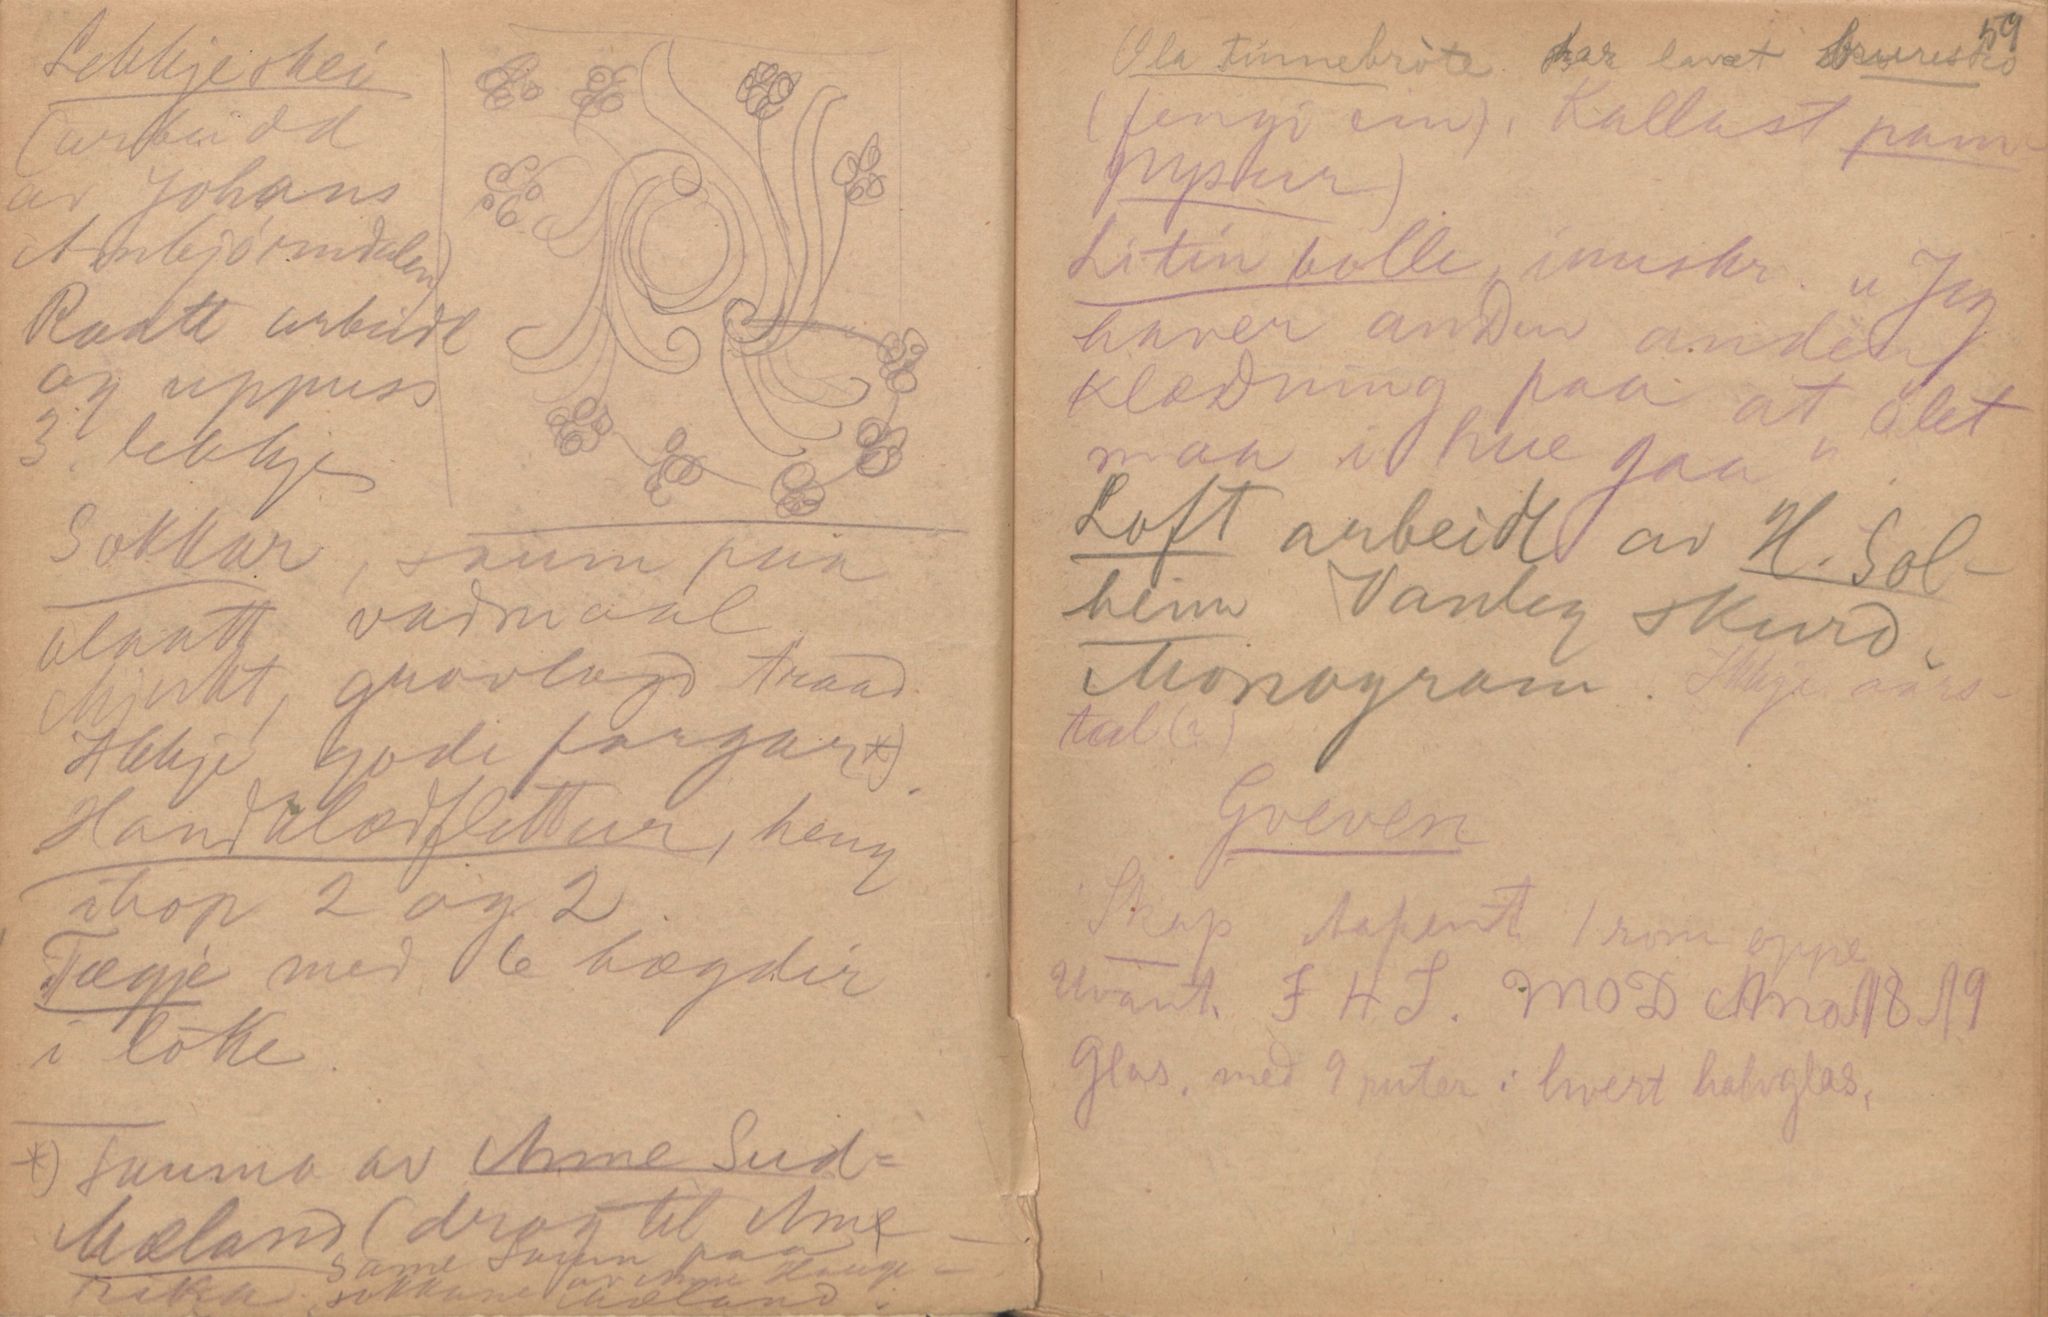 Lekkjeskei
(arbeidd
av Johans
Arnbjörndalen)
Raatt arbeidt
og uppuss
3. lekkjer
Sokkar, saum paa
blaatt vadmaal
Mjukt, grovlagd traad.
Ikkje gode fargar *).
Handklædflettur, heng
ihop 2 og 2.
Tægje med 6 bægdir
i löke.
*) Sauma av Anne Sud=
Mæland (drog til Ame
rika. Same saum paa
sokkane av Anne Hauge-
Mæland.
59
Ola Tinnebröte har lavet bruresko
(fengi ein). Kallast pam-
pusur)
Litin bolle, innskr. "Jeg
haver anden anden
klædning paa at ölet
maa i hue gaa"
Loft arbeidt av H. Sol-
heim Vanleg skurd.
Monogram. Ikkje aars-
tal (?)
Greven
Skap Aapent 1 rom oppe
Uvant. F H S. MOD Ano 1819
Glas, med 9 ruter i hvert halvglas.